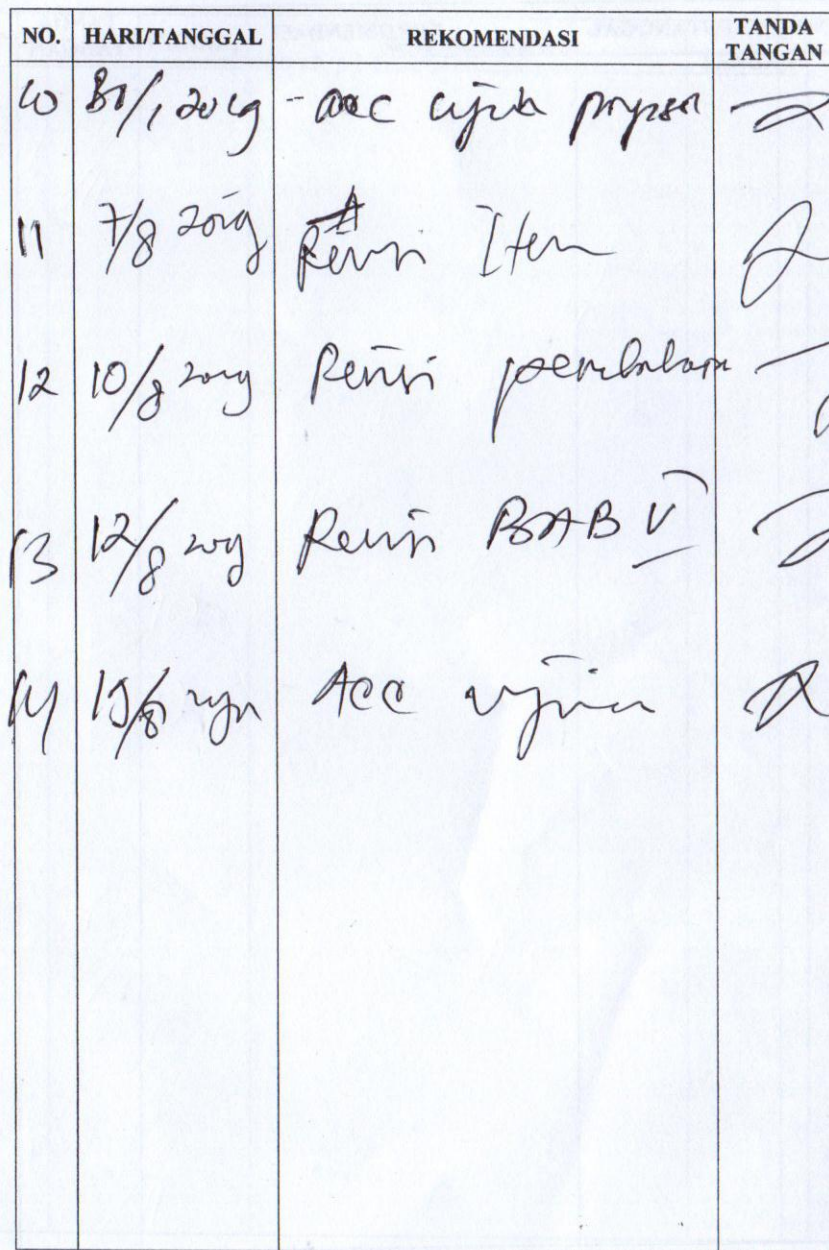 NO. HARI/TANGGAL REKOMENDASI TANDA TANGAN
10 31/1 2019 - acc ujian proposal
11 7/8 2019 Revisi Item
12 10/8 2019 Revisi pembahasan
13 12/8 2019 Revisi BAB V
14 15/8 2019 Acc ujian